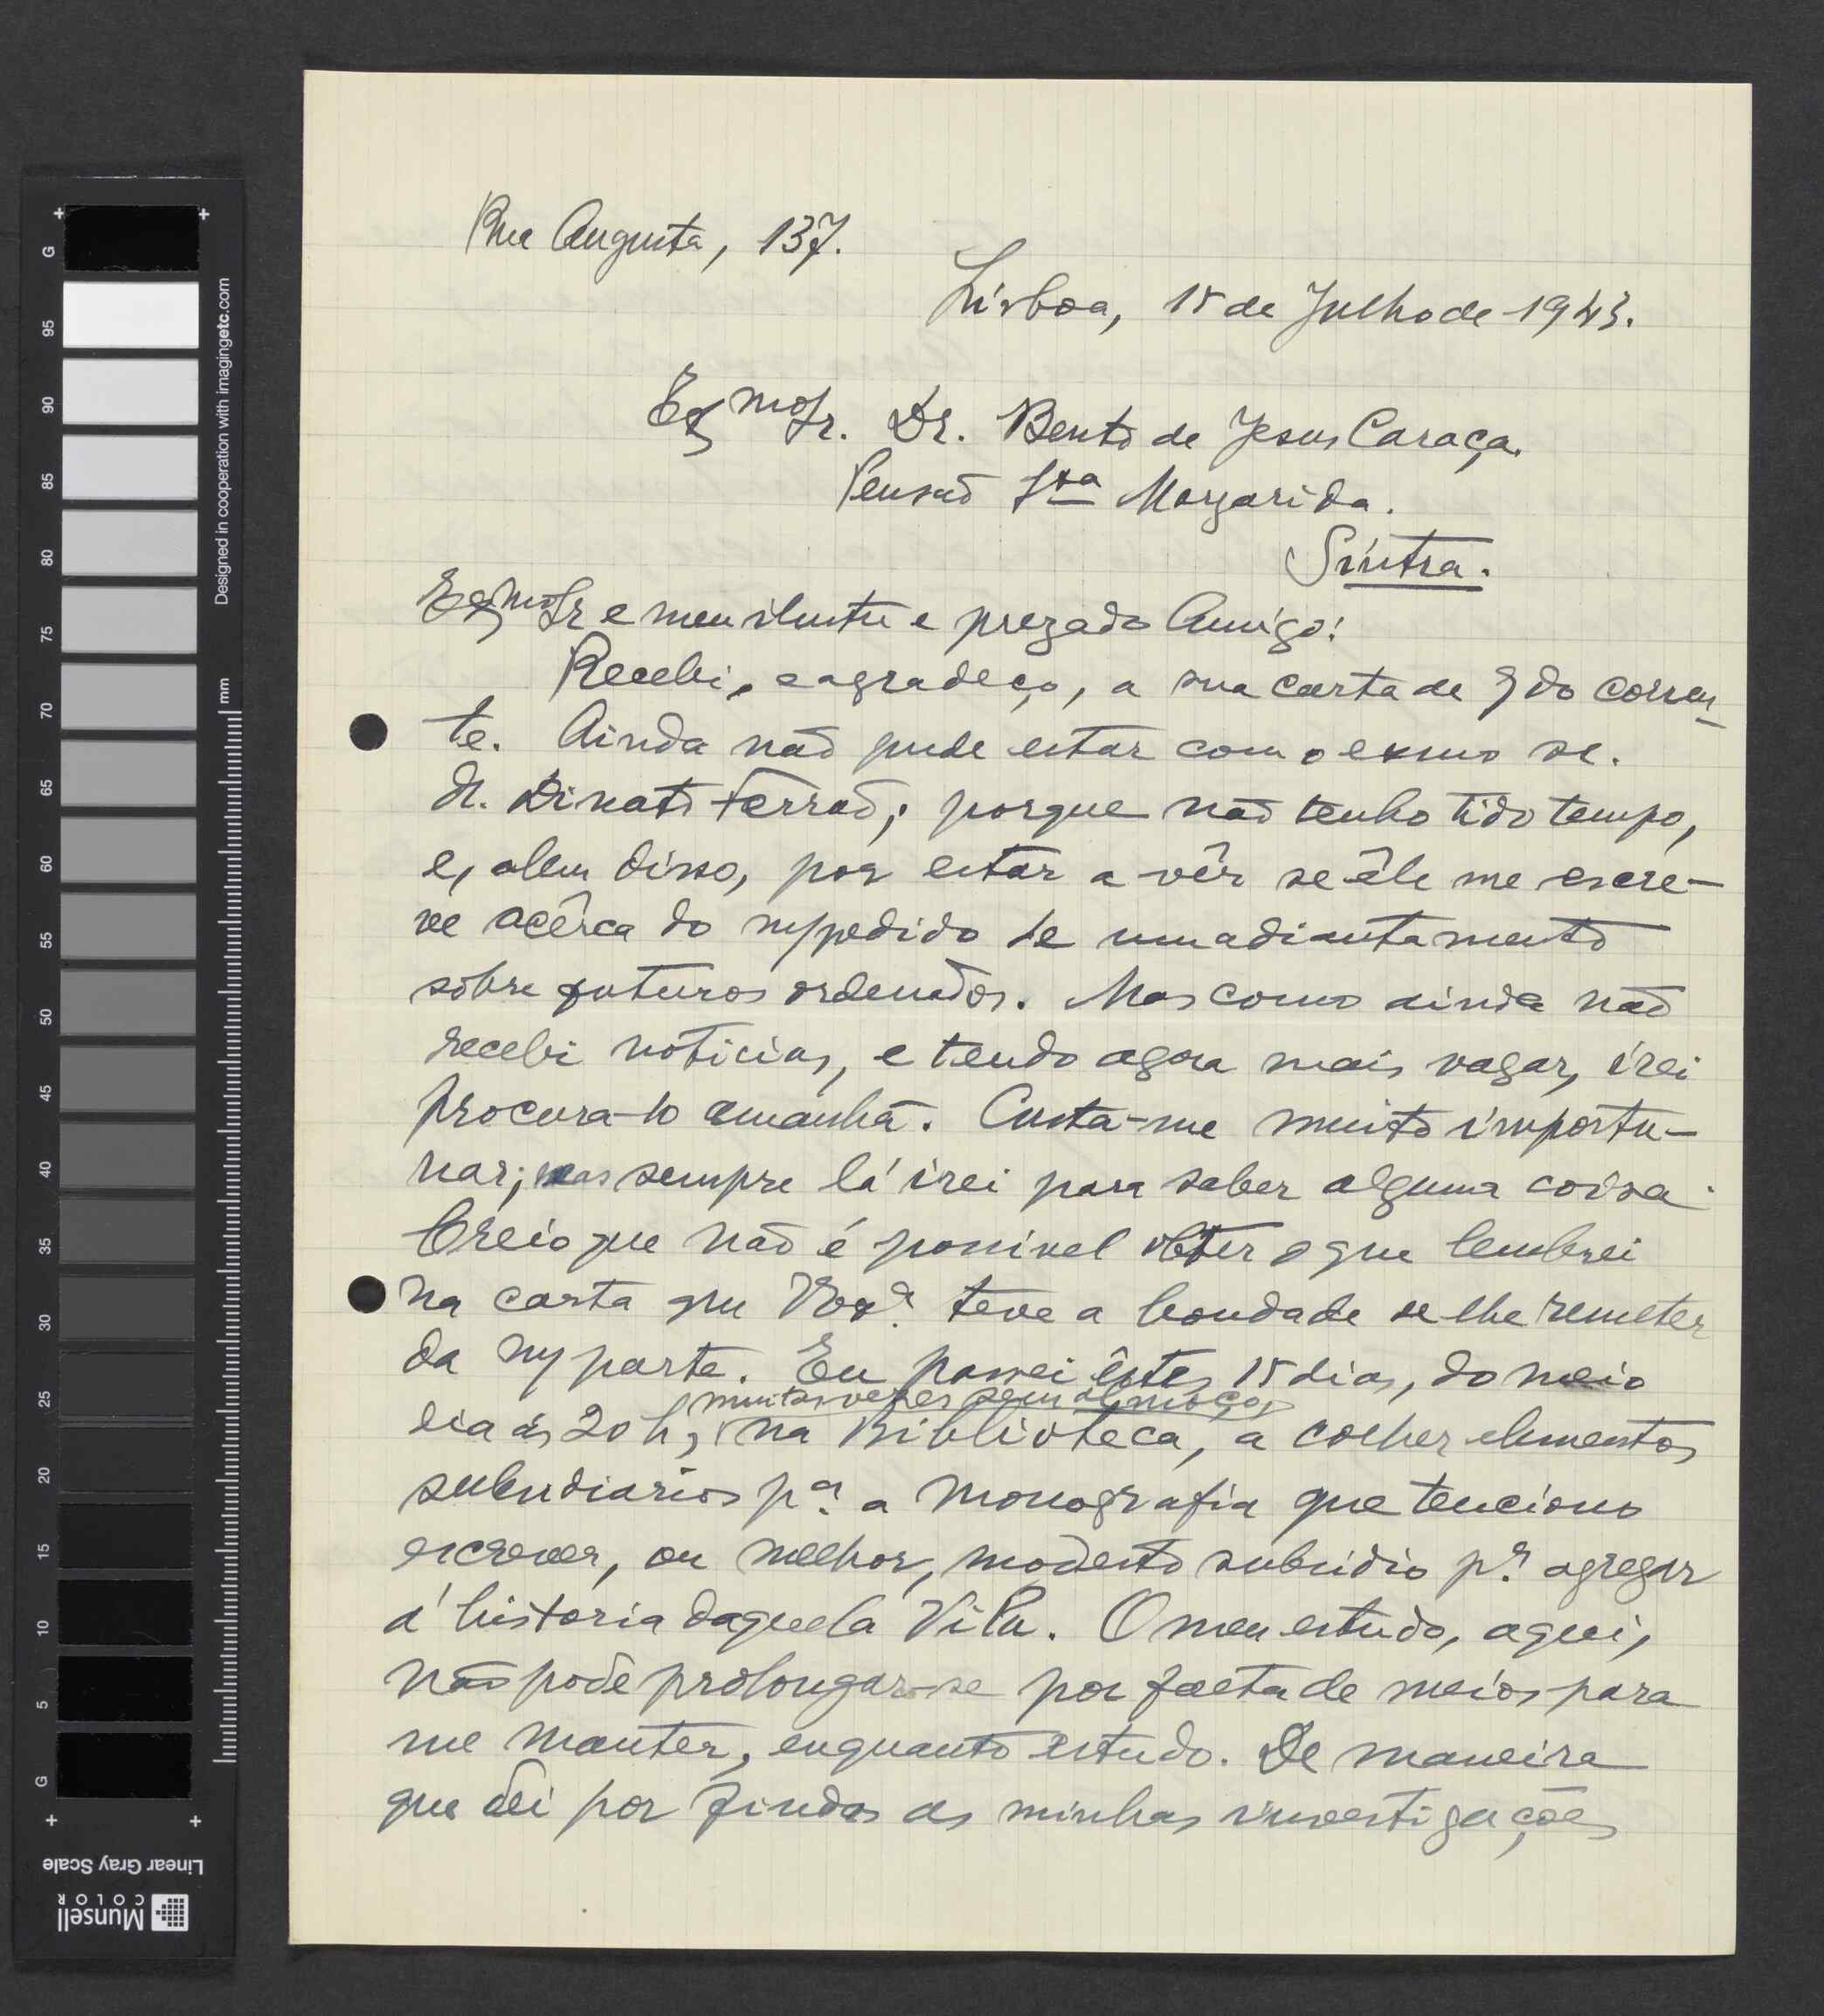 Rua Augusta, 137.
Lisboa, 15 de Julho de 1943.
Exmo Sr. Dr. Bento de Jesus Caraça.
Pensão Sta Margarida.
Sintra.
Exmo Sr e meu ilustre e prezado Amigo:
Recebi, e agradeço, a sua carta de 9 do corren-
te. Ainda não pude estar com o exmo sr.
dr. Lobato Ferrão; porque não tenho tido tempo,
e, alem disso, por estar a vêr se êle me escre-
ve acêrca do m/pedido de um adiantamento
sôbre futuros ordenados. Mas como ainda não
recebi noticias, e tendo agora mais vagar, irei
procura-lo amanhã. Custa-me muito importu-
nar; mas sempre lá irei para saber alguma coisa.
Creio que não é possivel obter o que lembrei
na carta que V Exª. teve a bondade de lhe remeter
da m/ parte. Eu passei êstes 15 dias, do meio
muitas vezes sem almoço,
dia ás 20 h, na Biblioteca, a colher elementos
subsidiarios pª. a monografia que tenciono
escrever, ou melhor, modesto subsidio pª. agregar
á historia daquela Vila. O meu estudo, aqui,
não pode prolongar-se por falta de meios para
me manter, enquanto estudo. De maneira
que dei por findas as minhas investigações
Designed in cooperation with imagingetc.com
mm
G 95 90 85 80 75 70 65 60 55 50 45 40 35 30 25 20 15 10 5 G
Linear Gray Scale
Munsell
COLOR